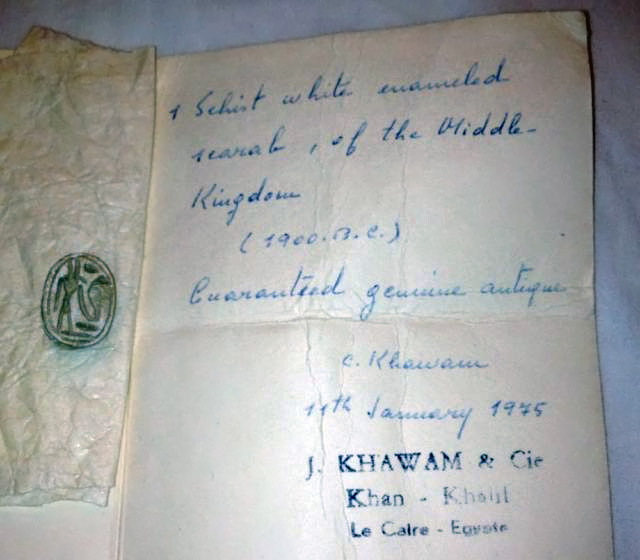 1 Schist white enameled
scarab, of the Middle-
Kingdom
(1900.B.C.)
Guaranteed genuine antique
C. Khawam
11th January 1975
J. KHAWAM & Cie
Khan - Khalil
Le Caire - Egypte